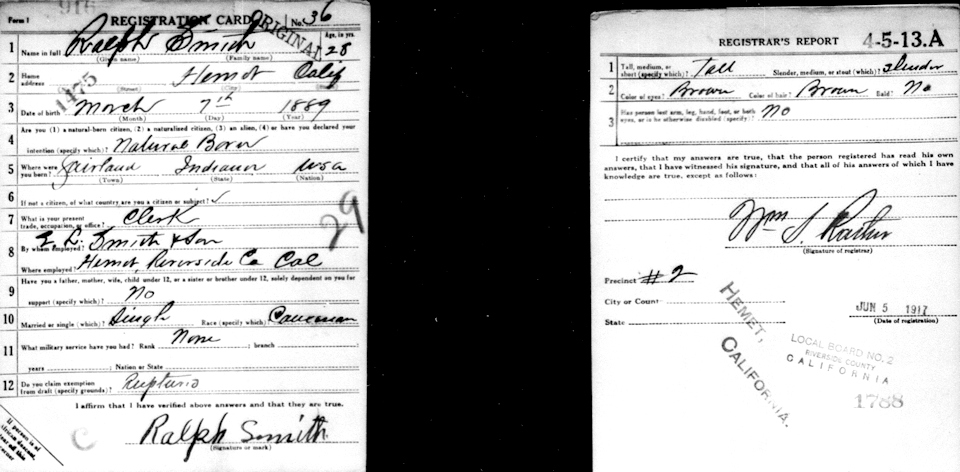 Form 1
REGISTRATION CARD
No. 36
ORIGINAL
1 Name in full Ralph Smith Age, in yrs. 28
(Given name) (Family name)
1475
2 Home address Hemet Calif
(Street) (City) (State)
3 Date of birth March 7th 1889
(Month) (Day) (Year)
4 Are you (1) a natural-born citizen, (2) a naturalized citizen, (3) an alien, (4) or have you declared your
intention (specify which)? Natural Born
5 Where were you born? Fairland Indiana USA
(Town) (State) (Nation)
6 If not a citizen, of what country are you a citizen or subject?
7 What is your present trade, occupation, or office? Clerk
29
8 By whom employed? Smith & Son
Where employed? Hemet, Riverside Co Cal
9 Have you a father, mother, wife, child under 12, or a sister or brother under 12, solely dependent on you for
support (specify which)? No
10 Married or single (which)? Single Race (specify which)? Caucasian
11 What military service have you had? Rank None ; branch
years ; Nation or State
12 Do you claim exemption from draft (specify grounds)?
I affirm that I have verified above answers and that they are true.
Ralph Smith
(Signature or mark)
If person is of
African descent,
tear off this
corner
C
REGISTRAR'S REPORT 4-5-13.A
1 Tall, medium, or short (specify which)? Tall Slender, medium, or stout (which)? Slender
2 Color of eyes? Brown Color of hair? Brown Bald? No
3 Has person lost arm, leg, hand, foot, or both
eyes, or is he otherwise disabled (specify)? No
I certify that my answers are true, that the person registered has read his own
answers, that I have witnessed his signature, and that all of his answers of which I
have knowledge are true, except as follows:
Wm S.
(Signature of registrar)
Precinct #2
City or County
State
JUN 5 1917
(Date of registration)
HEMET,
CALIFORNIA.
LOCAL BOARD NO. 2
RIVERSIDE COUNTY
CALIFORNIA
1788